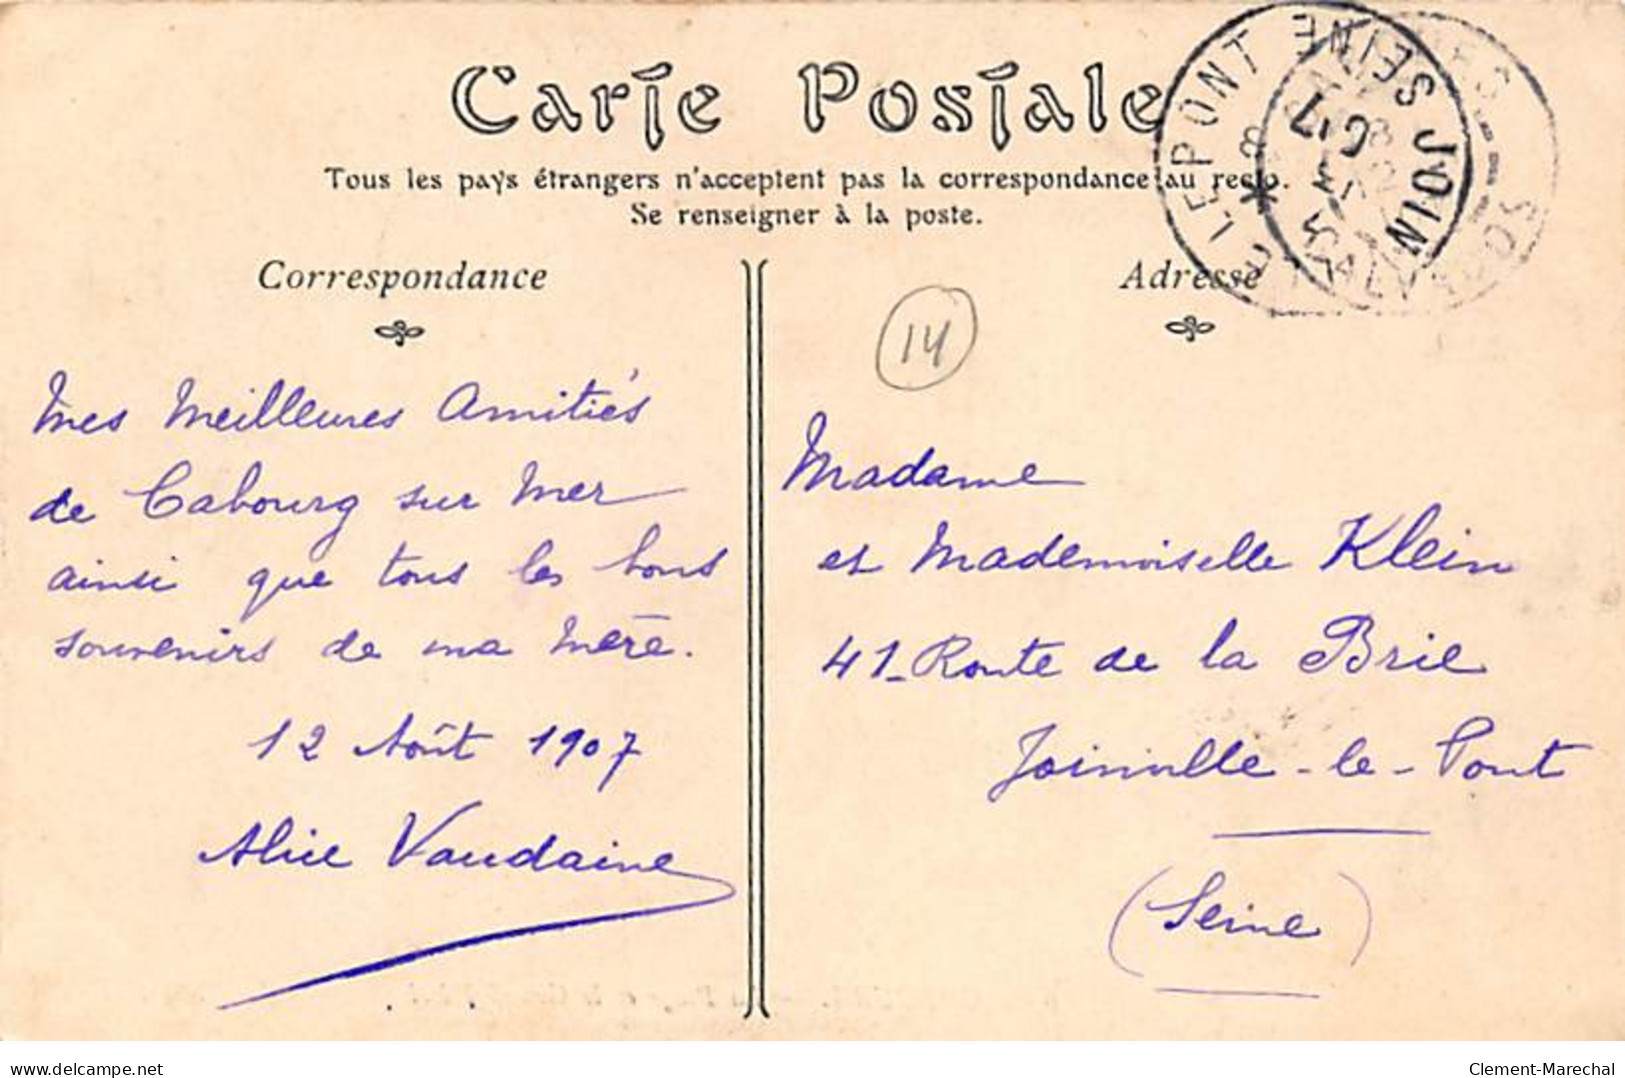 Carte Postale
Tous les pays étrangers n'acceptent pas la correspondance au recto.
Se renseigner à la poste.
Correspondance
Adresse
14
LE PONT SEINE JOIN
CALVADOS
Mes Meilleures Amitiés
de Cabourg sur Mer
ainsi que tous les bons
souvenirs de ma Mère.
12 Août 1907
Alice Vaudaine
Madame
et Mademoiselle Klein
41 - Route de la Brie
Joinville - le - Pont
(Seine)
www.delcampe.net
Clement-Marechal